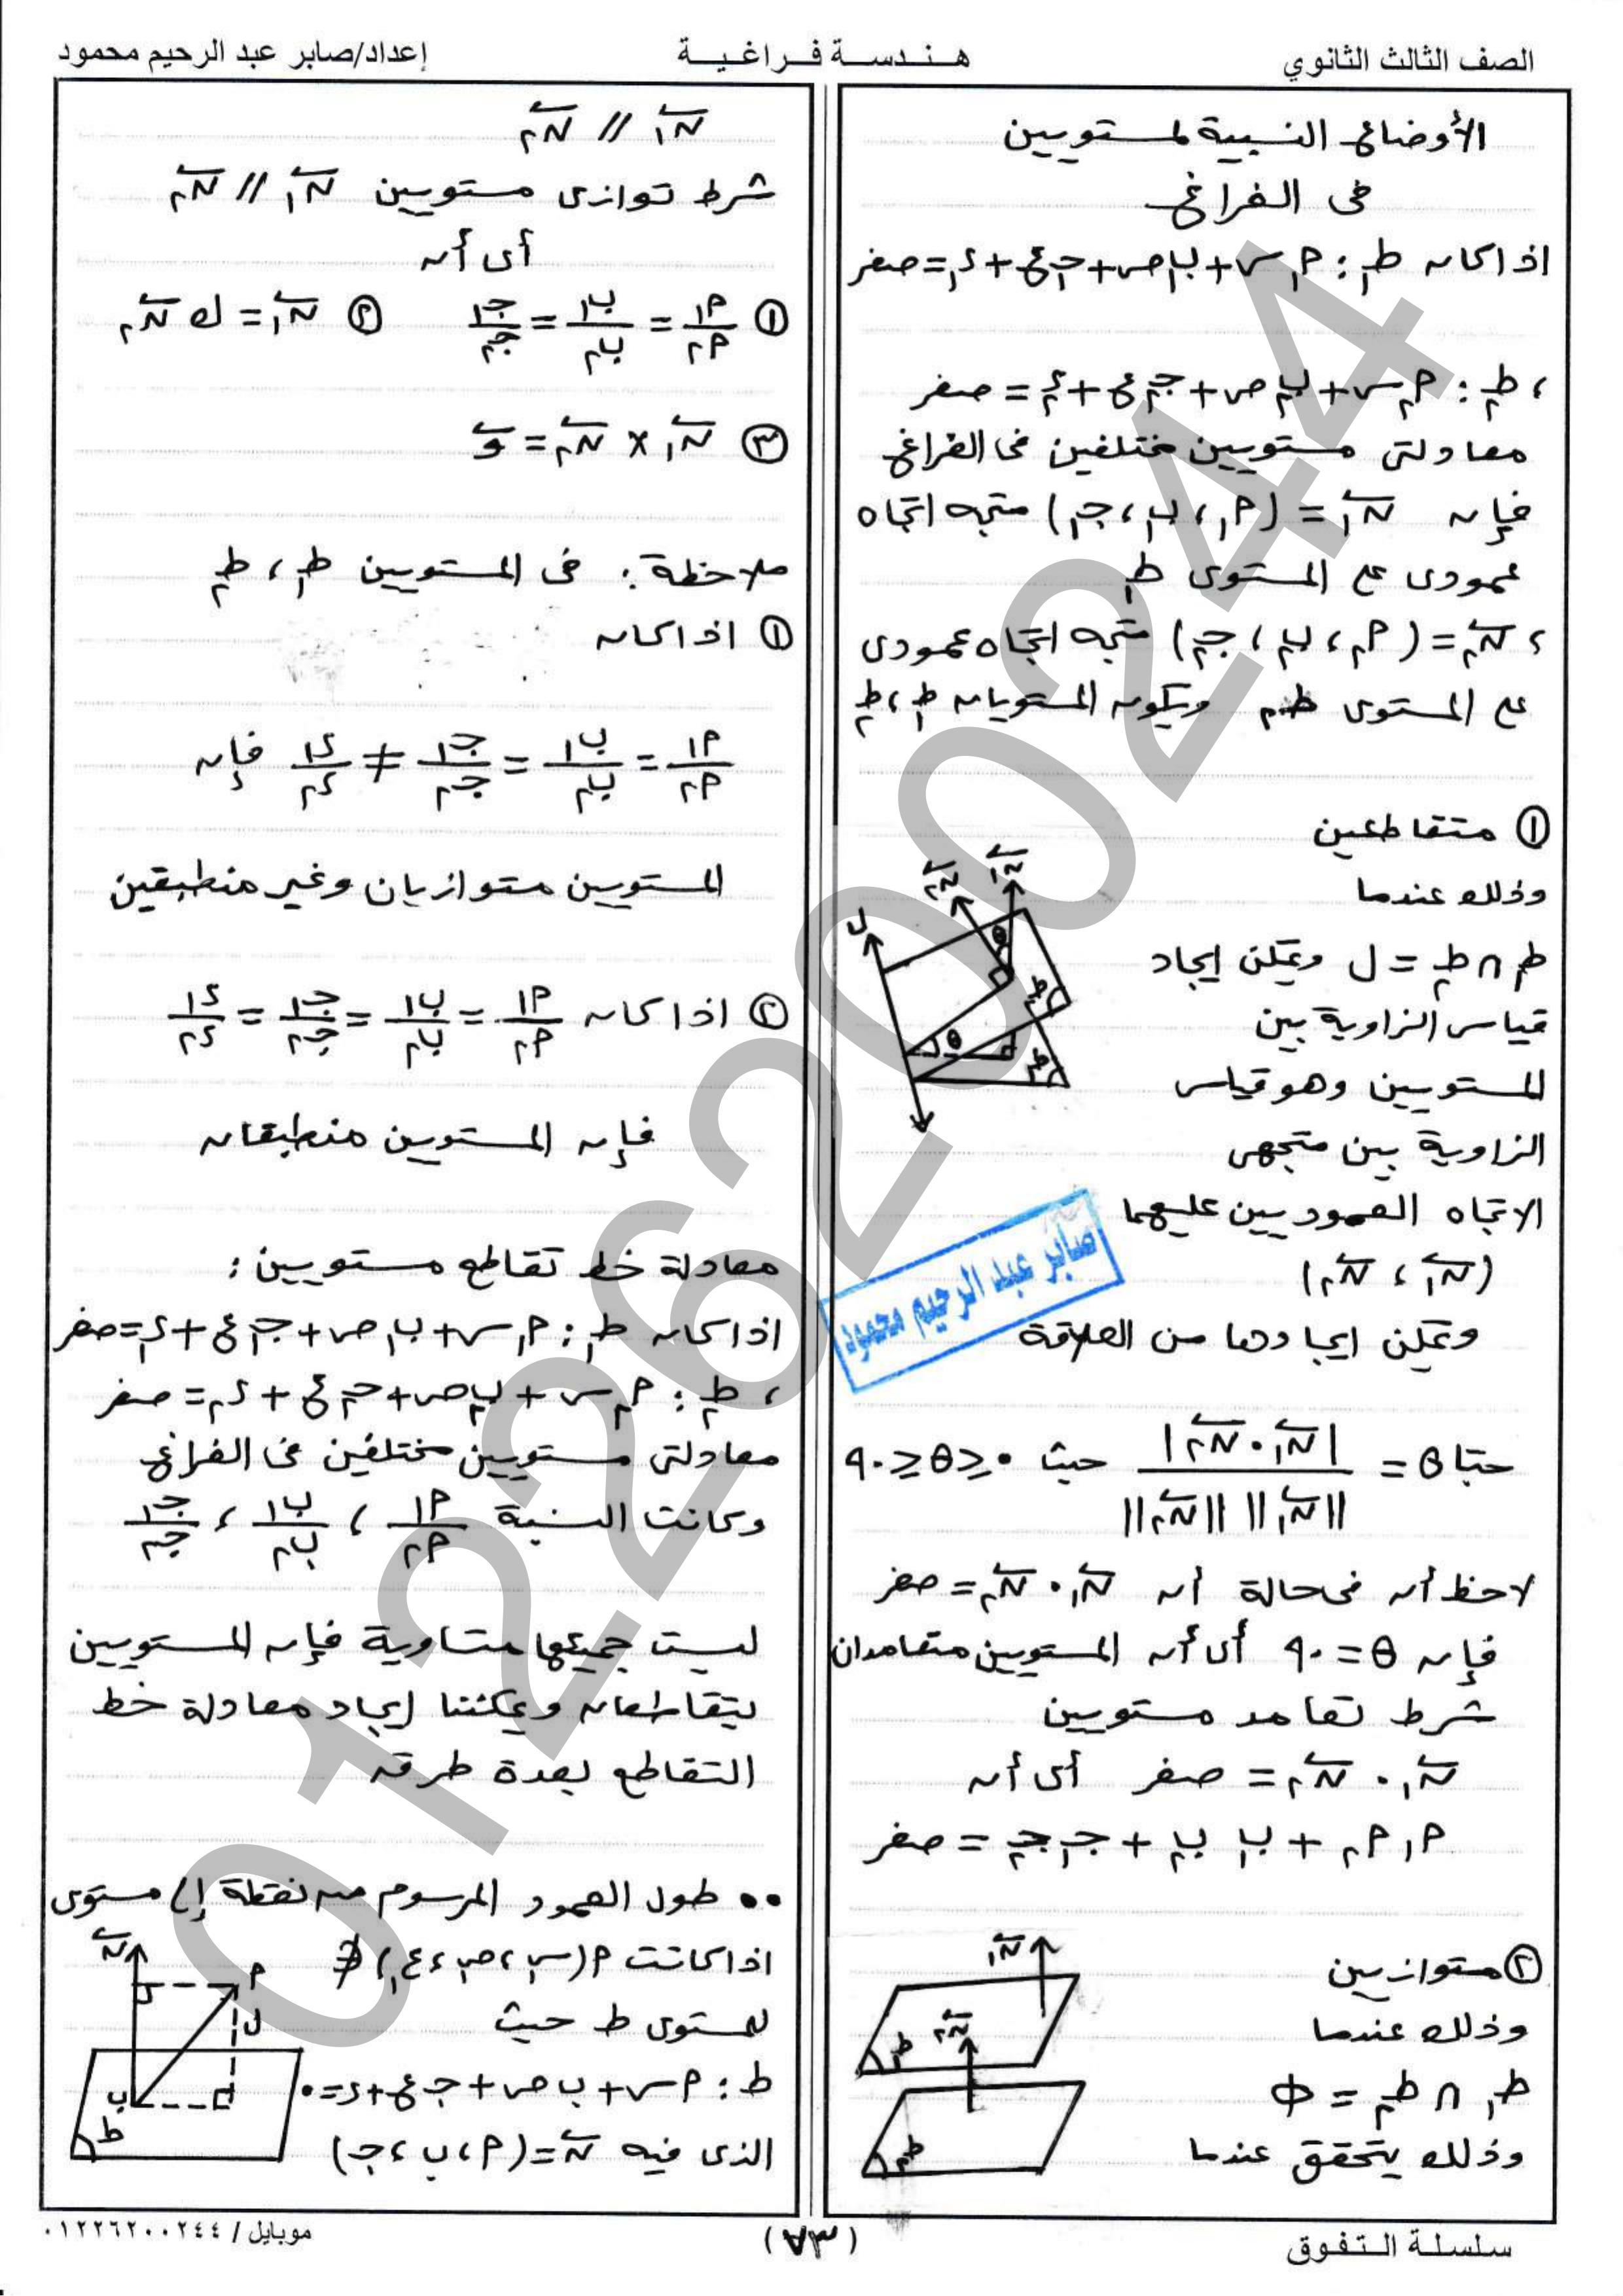 الصف الثالث الثانوي
هـنـدسـة فـراغـيـة
إعداد/صابر عبد الرحيم محمود
الأوضاع النسبية لمستويين
فى الفراغ
اذا كان ط₁ : م₁س + ب₁ص + جـ₁ع + ء₁ = صفر
، ط₂ : م₂س + ب₂ص + جـ₂ع + ء₂ = صفر
معادلتى مستويين مختلفين فى الفراغ
فإن ن₁ = (م₁ ، ب₁ ، جـ₁) متجه اتجاه
عمودى على المستوى ط₁
، ن₂ = (م₂ ، ب₂ ، جـ₂) متجه اتجاه عمودى
على المستوى ط₂ ويكون المستويان ط₁ ، ط₂
① متقاطعين
وذلك عندما
ط₁ ∩ ط₂ = ل ويمكن ايجاد
قياس الزاوية بين
المستويين وهو قياس
الزاوية بين متجهى
الاتجاه العموديين عليهما
(ن₁ ، ن₂)
ويمكن ايجادها من العلاقة
حتا θ = |ن₁ · ن₂| / ||ن₁|| ||ن₂|| حيث ٠ ≤ θ ≤ ٩٠
لاحظ أن فى حالة أن ن₁ · ن₂ = صفر
فإن θ = ٩٠ أى أن المستويين متعامدان
شرط تعامد مستويين
ن₁ · ن₂ = صفر أى أن
م₁ م₂ + ب₁ ب₂ + جـ₁ جـ₂ = صفر
② متوازيين
وذلك عندما
ط₁ ∩ ط₂ = Φ
وذلك يتحقق عندما
ن₁ // ن₂
شرط توازى مستويين ن₁ // ن₂
أى أن
① م₁/م₂ = ب₁/ب₂ = جـ₁/جـ₂ ② ن₁ = ك ن₂
③ ن₁ × ن₂ = و
ملاحظة : فى المستويين ط₁ ، ط₂
① اذا كان
م₁/م₂ = ب₁/ب₂ = جـ₁/جـ₂ ≠ ء₁/ء₂ فإن
المستويين متوازيان وغير منطبقين
② اذا كان م₁/م₂ = ب₁/ب₂ = جـ₁/جـ₂ = ء₁/ء₂
فإن المستويين منطبقان
معادلة خط تقاطع مستويين :
اذا كان ط₁ : م₁س + ب₁ص + جـ₁ع + ء₁ = صفر
، ط₂ : م₂س + ب₂ص + جـ₂ع + ء₂ = صفر
معادلتى مستويين مختلفين فى الفراغ
وكانت النسبة م₁/م₂ ، ب₁/ب₂ ، جـ₁/جـ₂
ليست جميعها متساوية فإن المستويين
يتقاطعان ويمكننا إيجاد معادلة خط
التقاطع بعدة طرق
•• طول العمود المرسوم من نقطة إلى مستوى
اذا كانت م(س₁ ، ص₁ ، ع₁) ∌
للمستوى ط حيث
ط : م س + ب ص + جـ ع + ء = ٠
الذى فيه ن = (م ، ب ، جـ)
صابر عبد الرحيم محمود
01226200244
سلسلة الـتـفـوق
(٧٣)
موبايل / ٠١٢٢٦٢٠٠٢٤٤